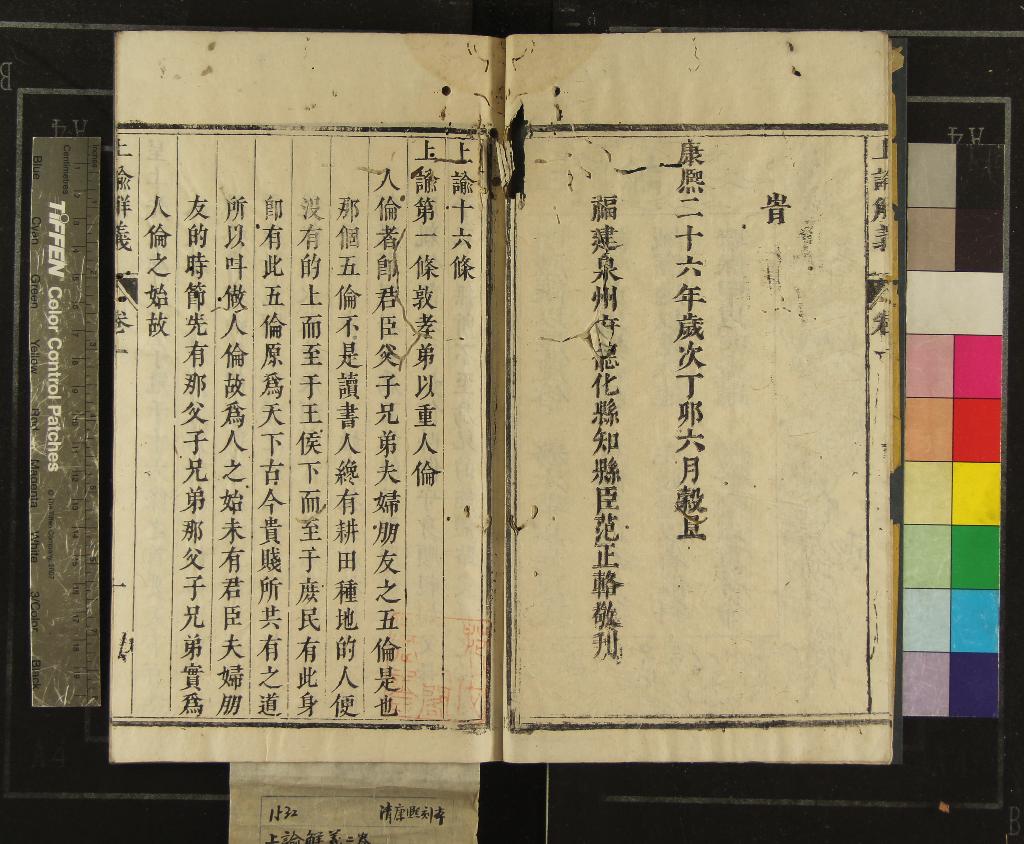 旹
康熈二十六年歲次丁卯六月穀旦
福建泉州府德化縣知縣臣范正輅敬刊
上諭解義
卷一
上諭十六條
上諭第一條敦孝弟以重人倫
人倫者卽君臣父子兄弟夫婦朋友之五倫是也
那個五倫不是讀書人纔有耕田種地的人便
没有的上而至于王侯下而至于庶民有此身
卽有此五倫原爲天下古今貴賤所共有之道
所以呌做人倫故爲人之始未有君臣夫婦朋
友的時節先有那父子兄弟那父子兄弟實爲
人倫之始故
上諭解義
卷一
一
1532
清康熙刻本
上諭解義二卷
inches
Centimetres
TIFFEN Color Control Patches
© The Tiffen Company, 2007
Blue
Cyan
Green
Yellow
Red
Magenta
White
3/Color
Black
A4
A4
B
B